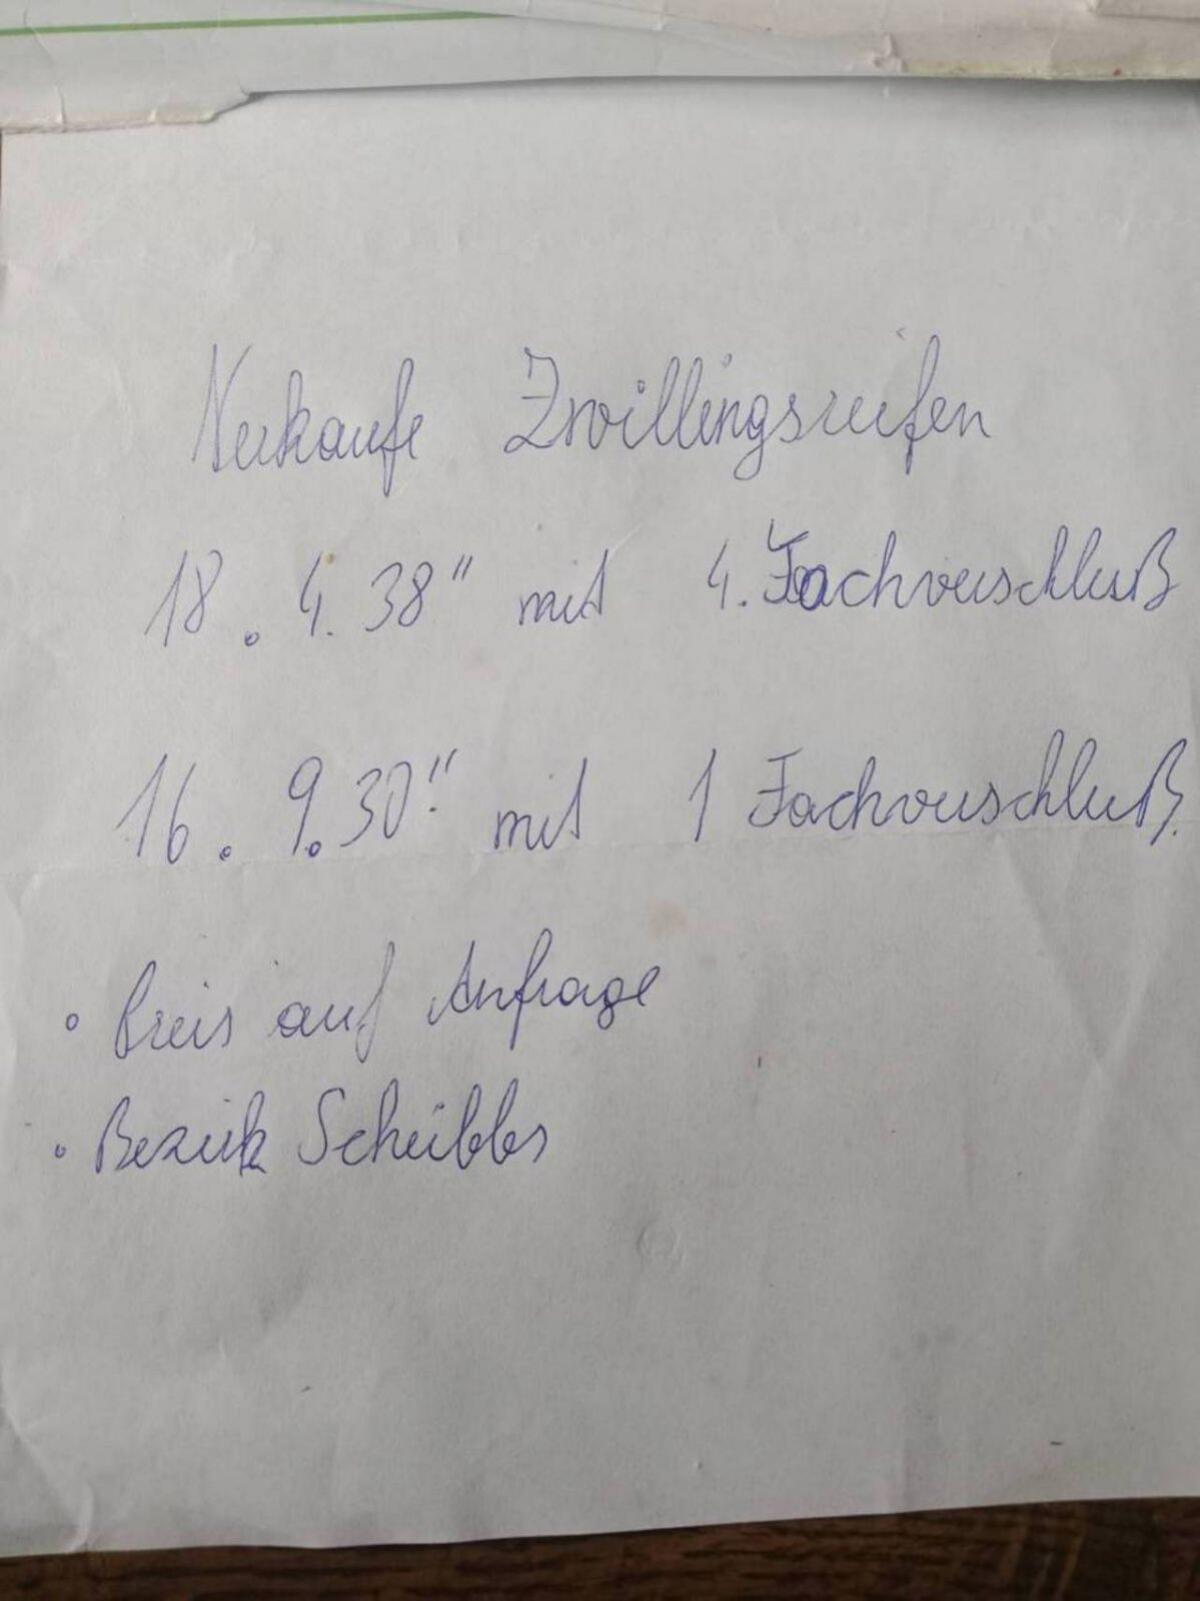 Verkaufe Zwillingsreifen
18.4.38" mit 4.Fachverschluß
16.9.30" mit 1 Fachverschluß.
• Preis auf Anfrage
• Bezirk Scheibbs